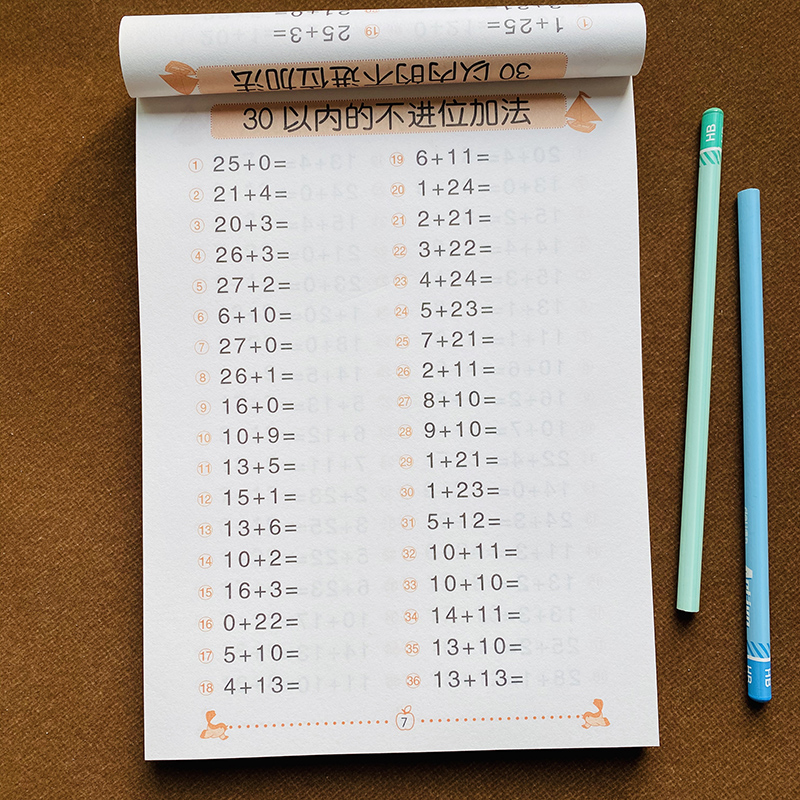 1+25=
⑲ 25+3=
30 以内的不进位加法
30 以内的不进位加法
① 25+0=
② 21+4=
③ 20+3=
④ 26+3=
⑤ 27+2=
⑥ 6+10=
⑦ 27+0=
⑧ 26+1=
⑨ 16+0=
⑩ 10+9=
⑪ 13+5=
⑫ 15+1=
⑬ 13+6=
⑭ 10+2=
⑮ 16+3=
⑯ 0+22=
⑰ 5+10=
⑱ 4+13=
⑲ 6+11=
⑳ 1+24=
㉑ 2+21=
㉒ 3+22=
㉓ 4+24=
㉔ 5+23=
㉕ 7+21=
㉖ 2+11=
㉗ 8+10=
㉘ 9+10=
㉙ 1+21=
㉚ 1+23=
㉛ 5+12=
㉜ 10+11=
㉝ 10+10=
㉞ 14+11=
㉟ 13+10=
㊱ 13+13=
7
HB
HB
HB